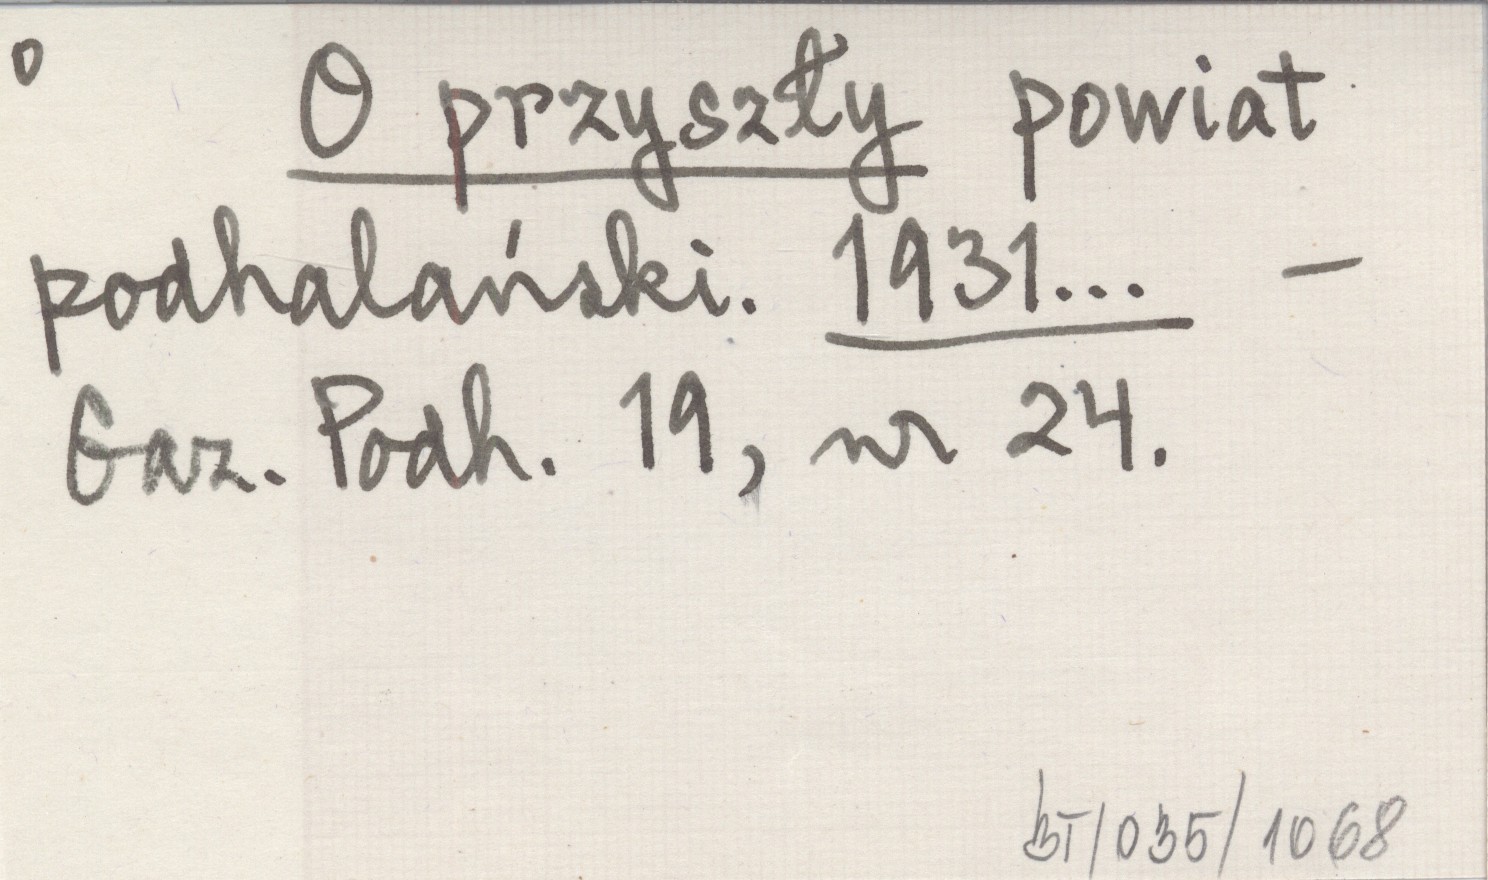 o
O przyszły powiat
podhalański. 1931... –
Gaz. Podh. 19, nr 24.
BT/035/1068